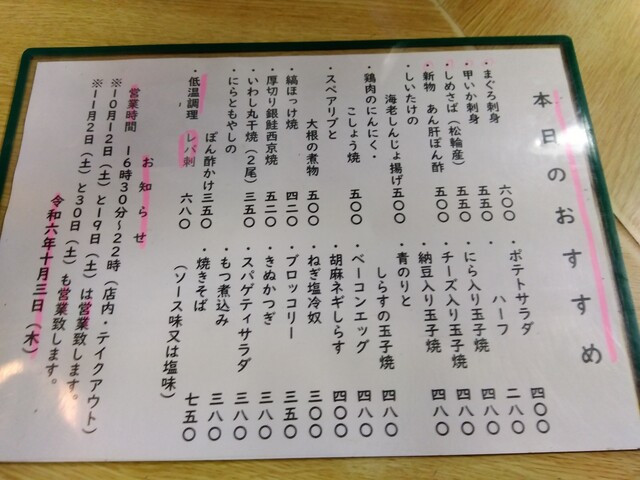 本日のおすすめ
・まぐろ刺身 六〇〇
・甲いか刺身 五五〇
・しめさば（松輪産） 五五〇
・新物 あん肝ぽん酢 五五〇
・しいたけの
海老しんじょ揚げ 五〇〇
・鶏肉のにんにく・
こしょう焼 五〇〇
・スペアリブと
大根の煮物 五〇〇
・縞ほっけ焼 四二〇
・厚切り銀鮭西京焼 五二〇
・いわし丸干焼（２尾） 三五〇
・にらともやしの
ぽん酢かけ 三五〇
・低温調理 レバ刺 六八〇
・ポテトサラダ 四〇〇
・ ハーフ 二八〇
・にら入り玉子焼 四八〇
・チーズ入り玉子焼 四八〇
・納豆入り玉子焼 四八〇
・青のりと
しらすの玉子焼 四八〇
・ベーコンエッグ 四八〇
・胡麻ネギしらす 四〇〇
・ねぎ塩冷奴 三〇〇
・ブロッコリー 三五〇
・きぬかつぎ 三八〇
・スパゲティサラダ 三八〇
・もつ煮込み 三八〇
・焼きそば 七五〇
（ソース味又は塩味）
お知らせ
営業時間 １６時３０分～２２時（店内・テイクアウト）
※１０月１２日（土）と１９日（土）は営業致します。
※１１月２日（土）と３０日（土）も営業致します。
令和六年十月三日（木）